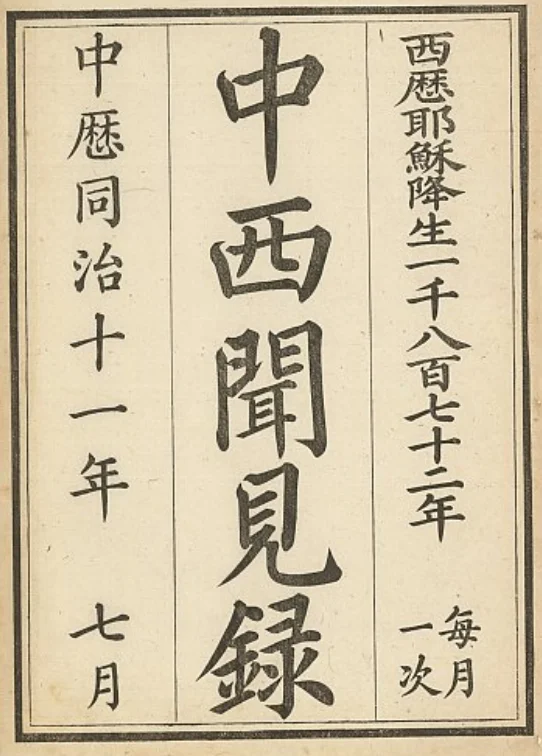 西厯耶穌降生一千八百七十二年
每月
一次
中西聞見録
中厯同治十一年 七月